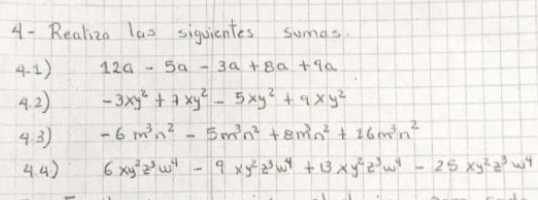 4- Realiza las siguientes sumas.
4.1) 12a - 5a - 3a + 8a + 9a
4.2) -3xy² + 7xy² - 5xy² + 9xy²
4.3) -6m³n² - 5m³n² + 8m³n² + 16m³n²
4.4) 6xy²z³w⁴ - 9xy²z³w⁴ + 13xy²z³w⁴ - 25xy²z³w⁴